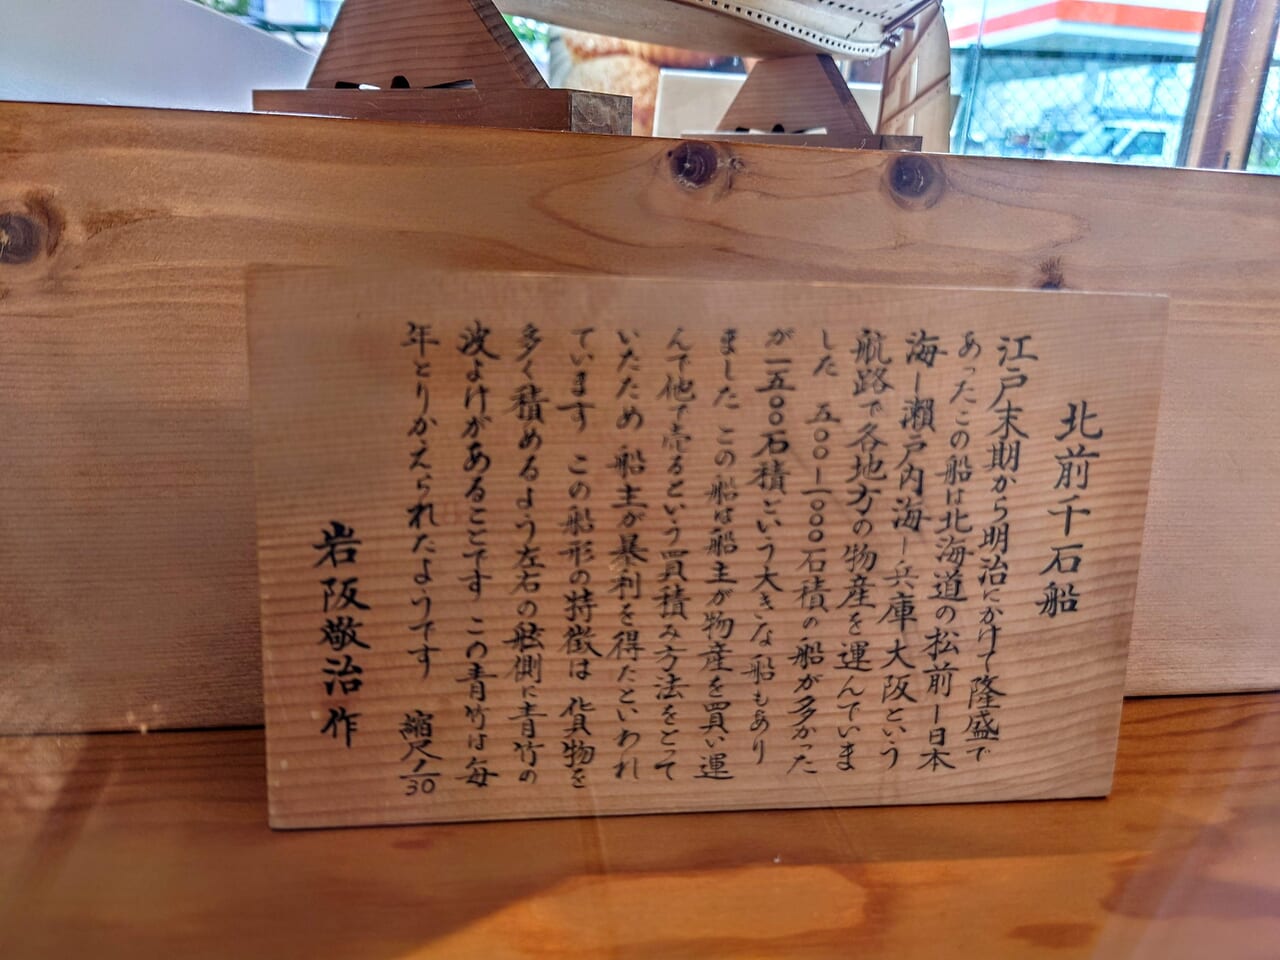 北前千石船
江戸末期から明治にかけて隆盛で
あったこの船は北海道の松前ー日本
海ー瀬戸内海ー兵庫大阪という
航路で各地方の物産を運んでいま
した 五〇〇ー一〇〇〇石積の船が多かった
が一五〇〇石積という大きな船もあり
ました この船は船主が物産を買い運
んで他で売るという買積み方法をとって
いたため 船主が暴利を得たといわれ
ています この船形の特徴は 貨物を
多く積めるよう左右の舷側に青竹の
波よけがあることです この青竹は毎
年とりかえられたようです 縮尺1/30
岩阪敬治作